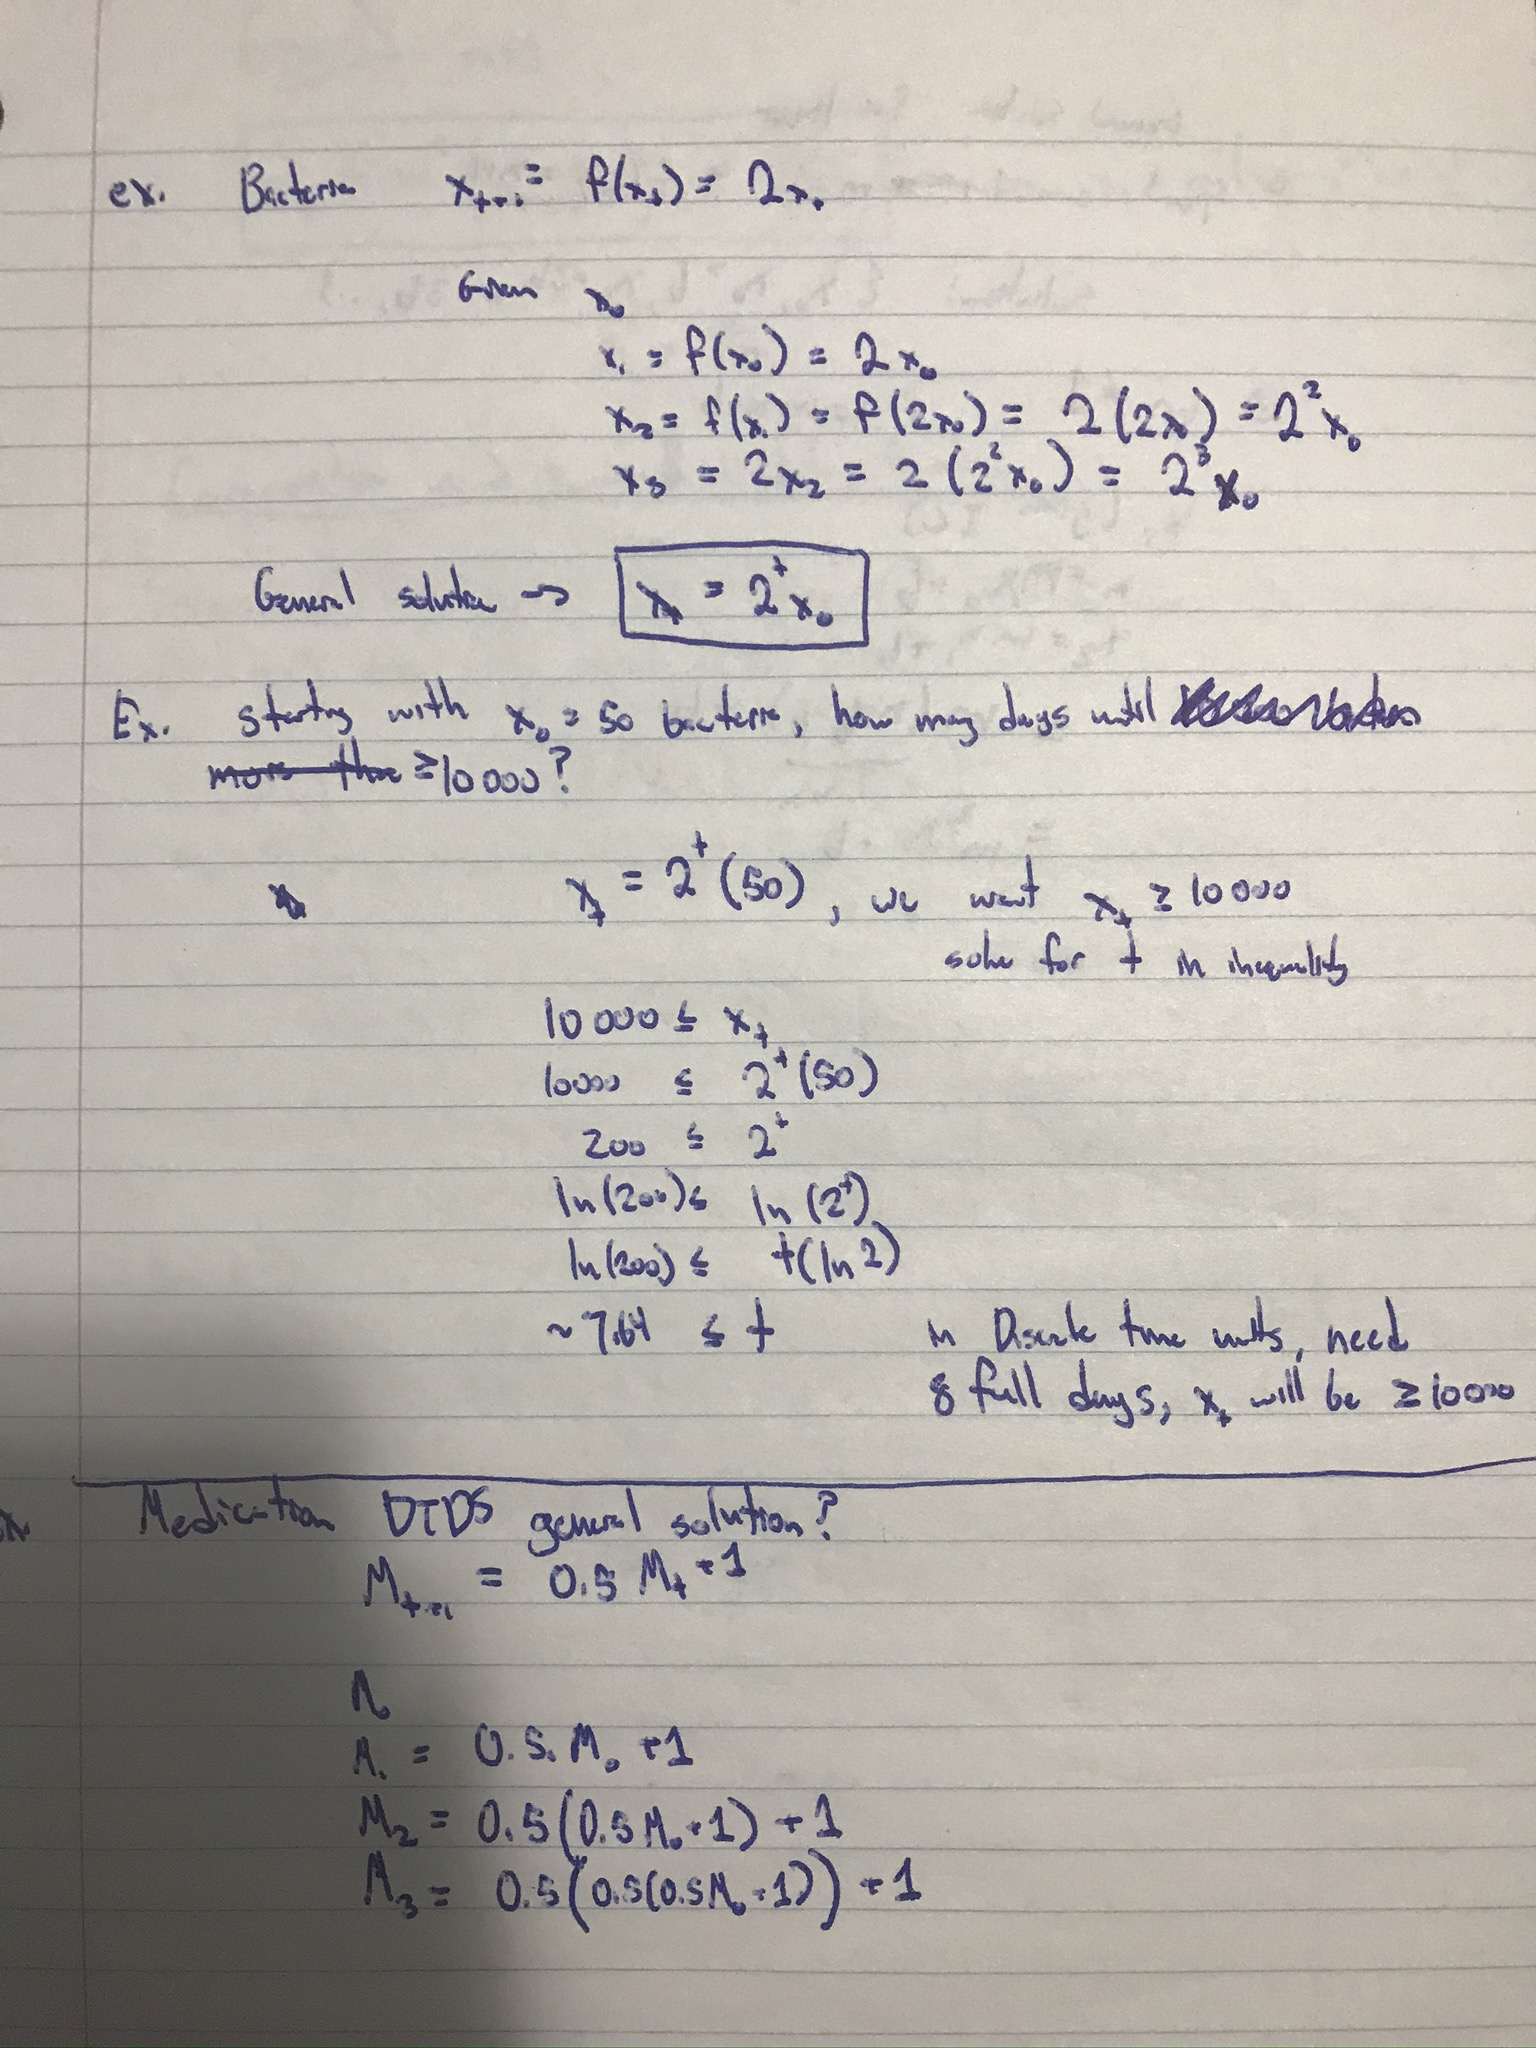 ex. Bacteria xₜ₊₁ = f(xₜ) = 2xₜ
Given x₀
x₁ = f(x₀) = 2x₀
x₂ = f(x₁) = f(2x₀) = 2(2x₀) = 2²x₀
x₃ = 2x₂ = 2(2²x₀) = 2³x₀
General solution → xₜ = 2ᵗx₀
Ex. starting with x₀ = 50 bacteria, how many days until
more than ≥10000?
xₜ = 2ᵗ(50), we want xₜ ≥ 10000
solve for t in inequality
10000 ≤ xₜ
10000 ≤ 2ᵗ(50)
200 ≤ 2ᵗ
ln(200) ≤ ln(2ᵗ)
ln(200) ≤ t(ln2)
~7.64 ≤ t in Discrete time units, need
8 full days, xₜ will be ≥ 10000
ex. Medication DTDS general solution?
Mₜ₊₁ = 0.5 Mₜ + 1
M₀
M₁ = 0.5 . M₀ + 1
M₂ = 0.5(0.5M₀+1) + 1
M₃ = 0.5(0.5(0.5M₀+1)) + 1